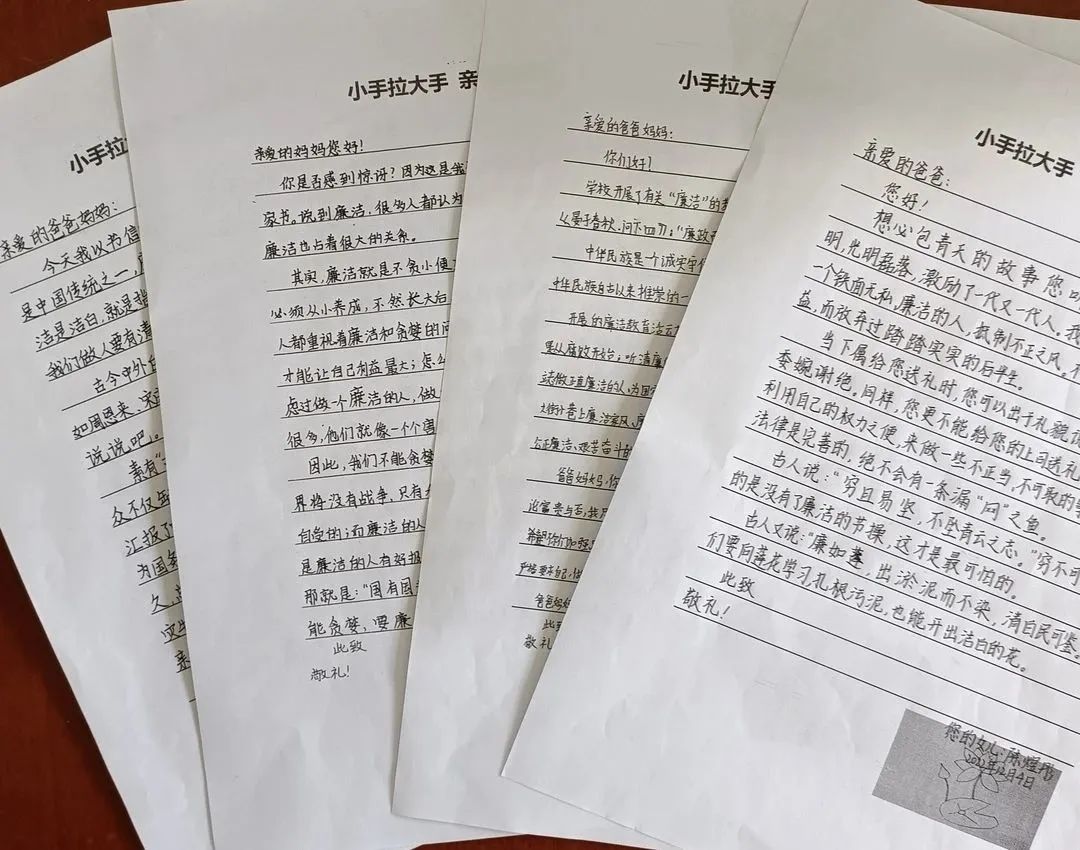 小手拉
亲爱的爸爸妈妈：
今天我以书信
是中国传统之一，
洁是洁白，就是
我们做人要有清
古今中外
如周恩来、
说说吧。
素有"
众不仅
汇报了
为国
久，
亲
小手拉大手 亲
亲爱的妈妈您好！
你是否感到惊讶？因为这是我
家书。说到廉洁，很多人都认为
廉洁也占着很大的关系。
其实，廉洁就是不贪小便
必须从小养成，不然长大后
人都重视着廉洁和贪婪的问
才能让自己利益最大；怎么
虑过做一个廉洁的人，做
很多，他们就像一个个害
因此，我们不能贪婪
界将没有战争，只有
自受的；而廉洁的人
是廉洁的人有好报
那就是："国有国
能贪婪，要廉
此致
敬礼！
小手拉大手
亲爱的爸爸妈妈：
你们好！
学校开展了有关"廉洁"的
从晏子春秋、问下四刀："廉政
中华民族是一个诚实守
中华民族自古以来推崇的一
开展的廉洁教育活云
果从腐败开始；听清廉
读做正直廉洁的人，为国
大街小巷上廉洁家风、
公正廉洁、艰苦奋斗的
爸爸妈妈，你
论富贵与否，我
希望你们加强
严格要求自己，做
爸爸妈妈
此致
敬礼
小手拉大手
亲爱的爸爸：
您好！
想必包青天的故事您
明，光明磊落，激励了一代又一代人。我
一个铁面无私，廉洁的人，抵制不正之风，不
益，而放弃过踏踏实实的后半生。
当下属给您送礼时，您可以出于礼貌
委婉谢绝。同样，您更不能给您的上司送礼
利用自己的权力之便，来做一些不正当，不可取的事
法律是完善的，绝不会有一条漏"问"之鱼。
古人说："穷且易坚，不坠青云之志。"穷不可
的是没有了廉洁的节操，这才是最可怕的。
古人又说："廉如莲，出淤泥而不染，清白民可鉴。
们要向莲花学习扎根污泥，也能开出洁白的花。
此致
敬礼！
您的女儿：陈煜彤
2022年12月4日